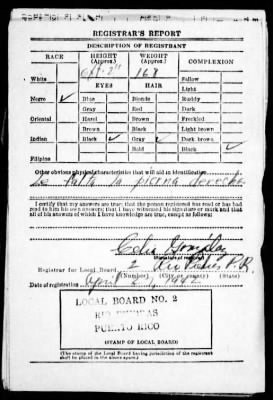 REGISTRAR'S REPORT
DESCRIPTION OF REGISTRANT
RACE HEIGHT (Approx.) WEIGHT (Approx.) COMPLEXION
168
White Sallow
EYES HAIR Light
Negro ✓ Blue Blonde Ruddy
Gray Red Dark
Oriental Hazel Brown Freckled
Brown Black Light brown
Indian Black ✓ Gray ✓ Dark brown
Bald Black ✓
Filipino
Other obvious physical characteristics that will aid in identification
Le falta la pierna derecha
I certify that my answers are true; that the person registered has read or has had
read to him his own answers; that I have witnessed his signature or mark and that
all of his answers of which I have knowledge are true, except as follows:
(Signature of registrar)
Registrar for Local Board 2 Rio Piedras P.R.
(Number) (City or county) (State)
Date of registration April 1942
LOCAL BOARD NO. 2
RIO PIEDRAS
PUERTO RICO
(STAMP OF LOCAL BOARD)
(The stamp of the Local Board having jurisdiction of the registrant
shall be placed in the above space.)